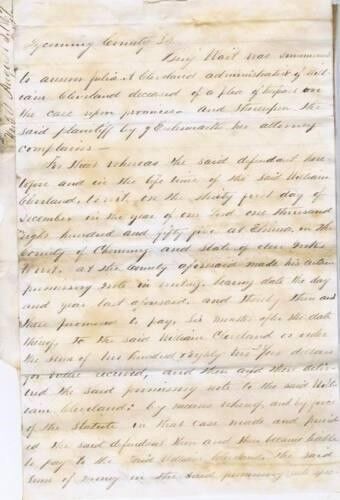 Lycoming County Ss
Benj Wait was summoned
to answer Julia A Cleveland administratrix of Will
iam Cleveland deceased of a plea of trespass on
the case upon promises - and thereupon the
said plaintiff by her attorney
complains -
For that whereas the said defendant here
tofore and in the life time of the said William
Cleveland, to wit, on the thirty first day of
December in the year of our Lord one thousand
eight hundred and fifty five at Elmira in the
County of Chemung and state of New York
to wit, at the County aforesaid made his certain
promissory note in writing, bearing date the day
and year last aforesaid, and thereby then and
there promised to pay, six months after the date
thereof, to the said William Cleveland or order
the sum of hundred eighty dollars
for value received, and then and there deliv
ered the said promissory note to the said Will
iam Cleveland: by means whereof, and by force
of the statute in that case made and provid
ed the said defendant then and there became liable
to pay to the said William Cleveland the said
sum of money in the said promissory note spec